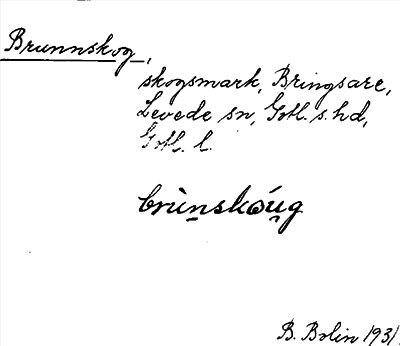 Brunnskog,
skogsmark, Bringsare,
Levede sn, Gotl. s. hd,
Gotl. l.
brùn̯skóu̯g
B. Bolin 1931